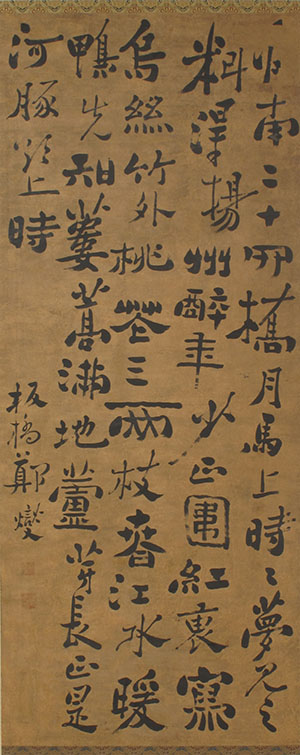 淮南二十四橋月馬上時〻夢見之
料得揚州醉年少正圍紅褎寫
烏絲竹外桃花三兩枝春江水暖
鴨先知蔞蒿滿地蘆芽長正是
河豚欲上時
板橋鄭燮